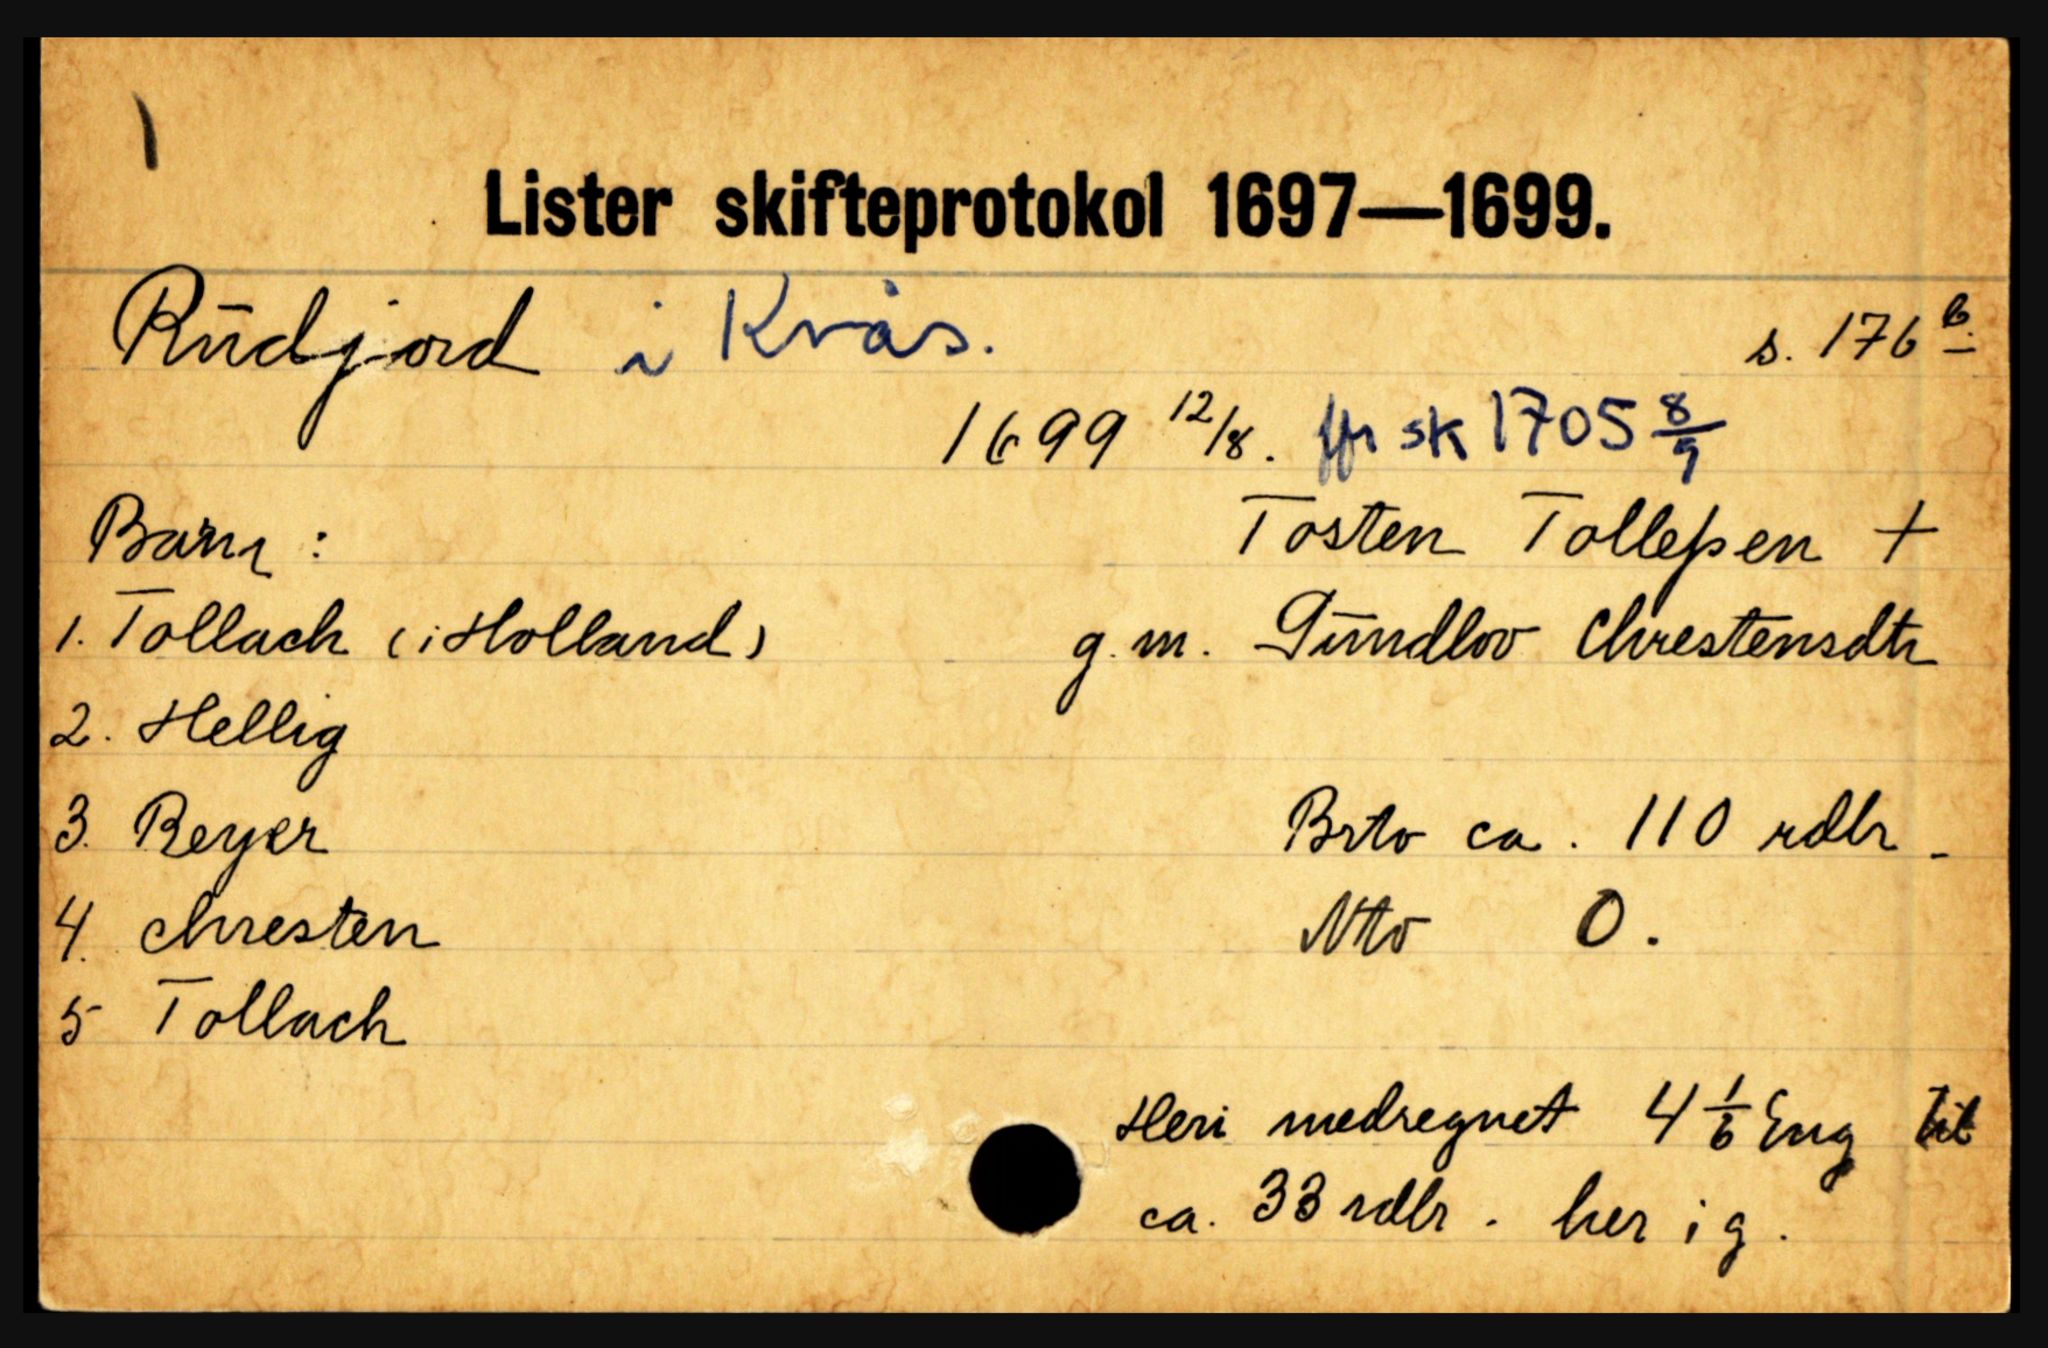 1
Lister skifteprotokol 1697—1699.
Rūdjord i Kvås. s. 176 b.
1699 12/8. ffr sk 1705 8/9
Barn : Tosten Tolleſsen +
1. Tollach (i Holland) g. m. Gūndlov Chrestensdtr
2. Hellig
3. Reyer Brto ca. 110 rdlr.
4. Chresten Nto 0.
5 Tollach
Heri medregnet 4 1/6 Eng til
ca. 33 rdlr. her i g.